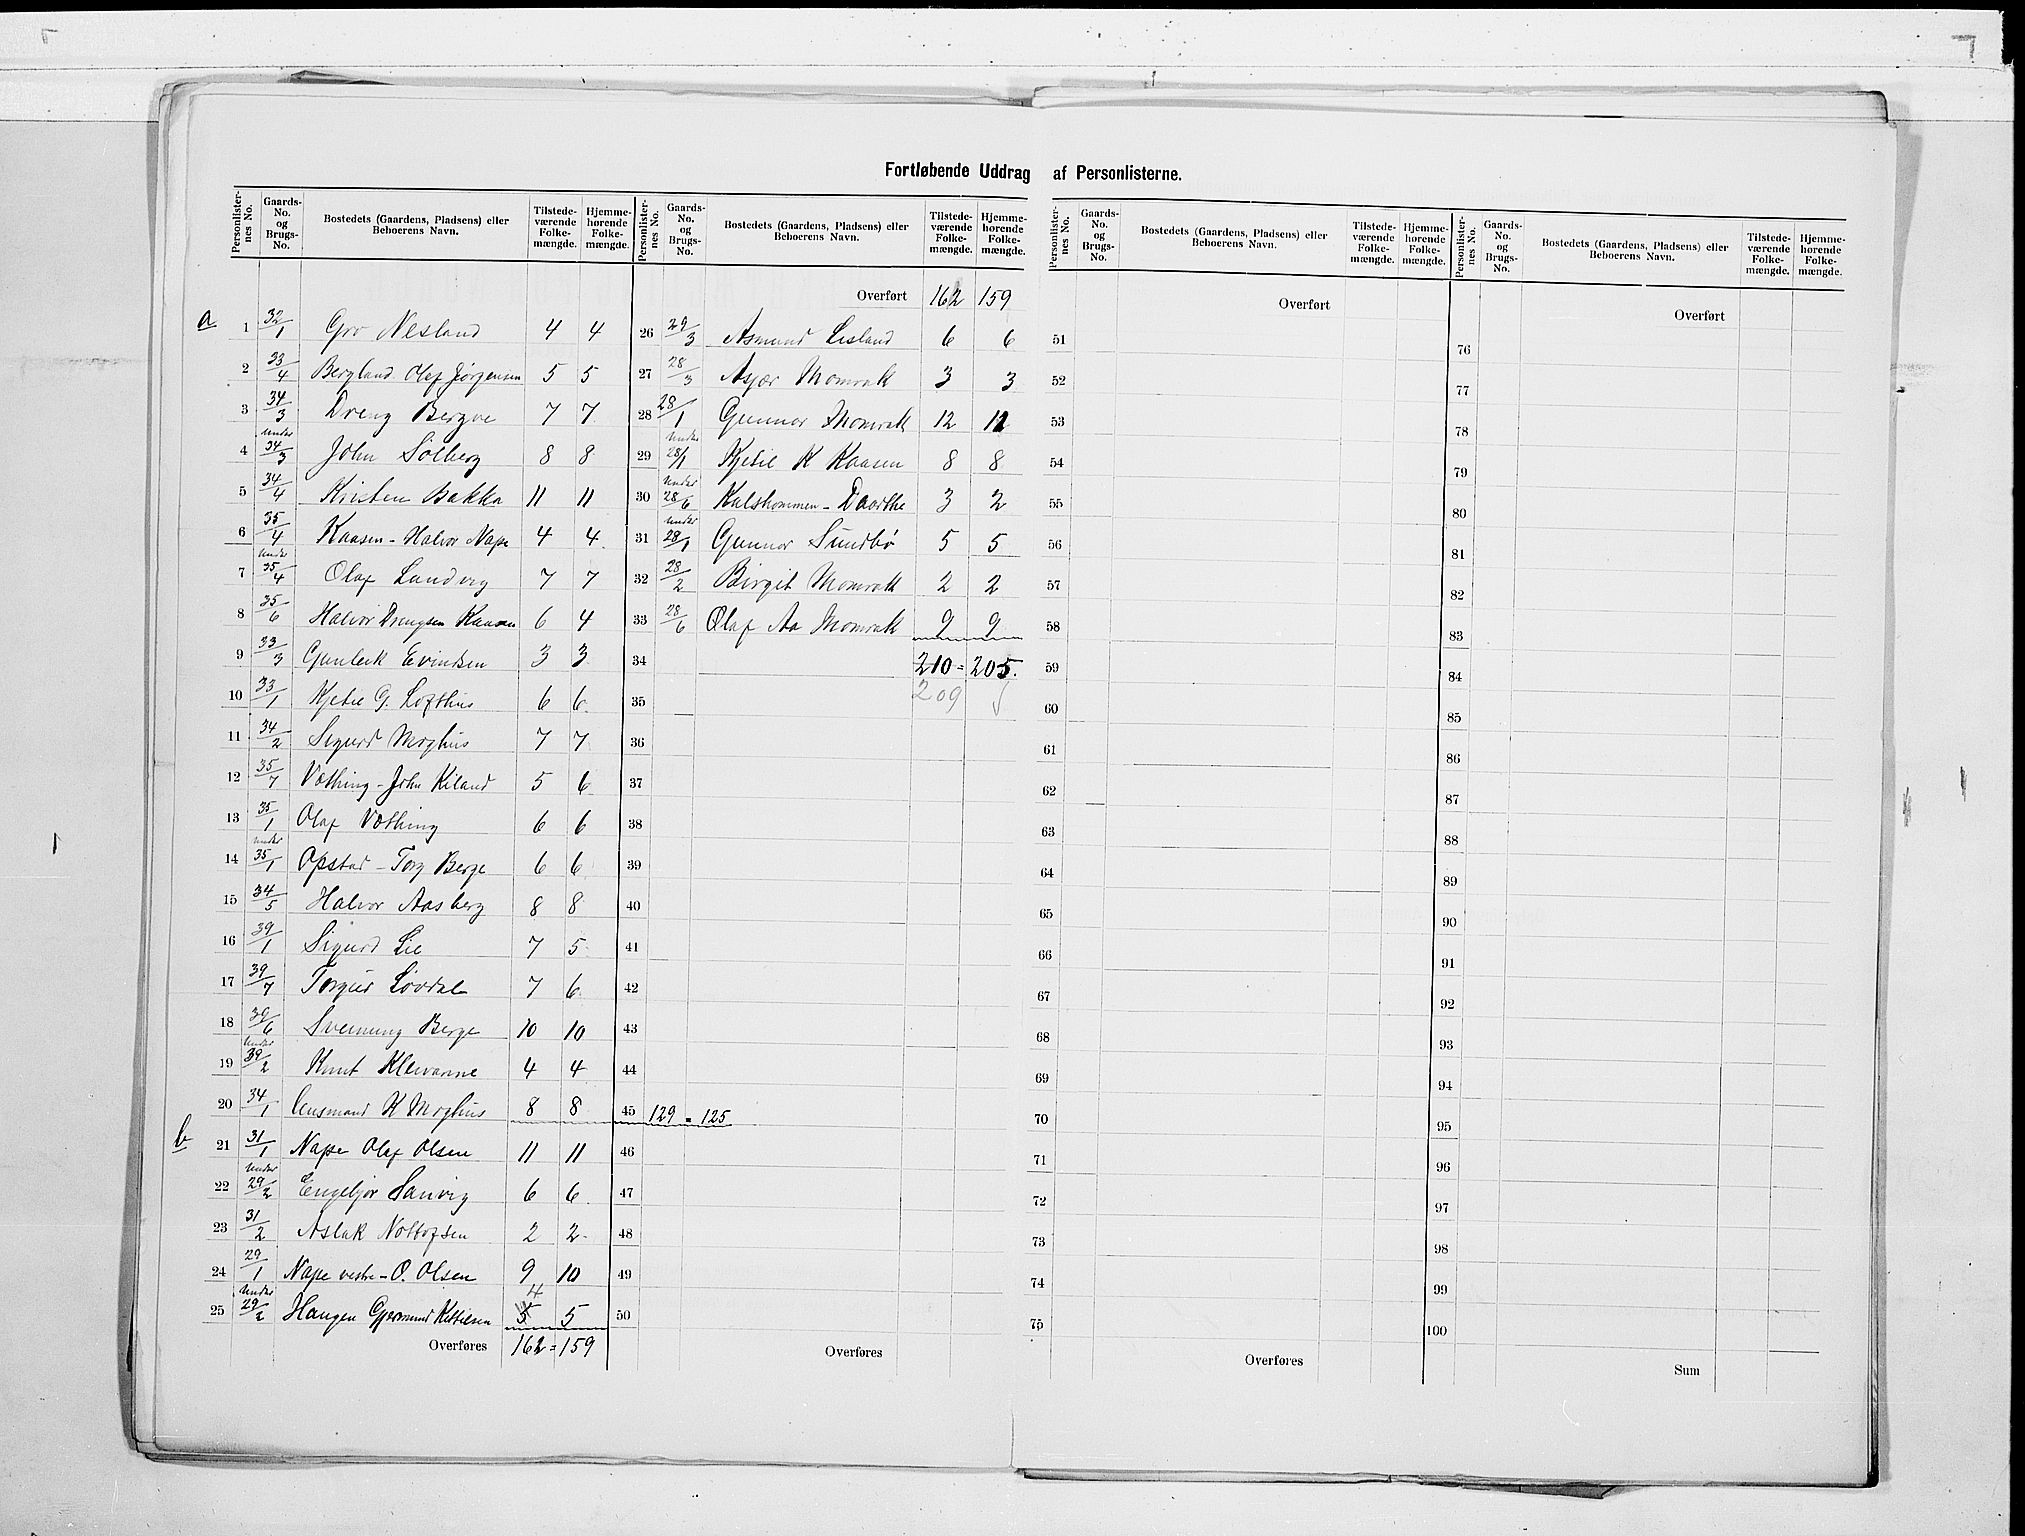 Fortløbende Uddrag af Personlisterne.
Personlister-nes No. Gaards-No. og Brugs-No. Bostedets (Gaardens, Pladsens) eller Beboerens Navn. Tilstede-værende Folke-mængde. Hjemme-hørende Folke-mængde.
a
1 32/1 Gro Nesland 4 4
2 33/4 Bergland Olef Jørgensen 5 5
3 34/3 Dreng Bergve 7 7
4 under 34/3 John Solberg 8 8
5 34/4 Kristen Bakka 11 11
6 35/4 Kaasen - Halvor Nape 4 4
7 under 35/4 Olaf Landvig 7 7
8 35/6 Halvor Drengsen Kaasen 6 4
9 33/3 Gunleik Evindsen 3 3
10 33/1 Kjetil G. Lofthus 6 6
11 34/2 Sigurd Moghus 7 7
12 35/7 Vothing - John Kiland 5 6
13 35/1 Olaf Vothing 6 6
14 under 35/1 Opstad - Torg Berge 6 6
15 34/5 Halvor Aasberg 8 8
16 39/1 Sigurd Lie 7 5
17 39/7 Torgus Lovdal 7 6
18 39/6 Sveinung Berge 10 10
19 under 39/2 Knut Klevanne 4 4
20 34/1 Aasmund K Moghus 8 8
b
21 31/1 Nape Olaf Olsen 11 11
22 under 29/2 Engebjør Sanvig 6 6
23 31/2 Aslak Nottofsen 2 2
24 29/1 Nape vestre - O. Olsen 9 10
25 under 29/2 Haugen Gjermund Kittilsen 5 4 5
Overføres 162 = 159
Personlister-nes No. Gaards-No. og Brugs-No. Bostedets (Gaardens, Pladsens) eller Beboerens Navn. Tilstede-værende Folke-mængde. Hjemme-hørende Folke-mængde.
Overført 162 159
26 29/3 Asmund Lisland 6 6
27 28/3 Asjer Momrak 3 3
28 28/1 Gunnar Momrak 12 12
29 under 28/1 Kjetil K Kaasen 8 8
30 under 28/6 Kalshommen - Daarthe 3 2
31 under 28/1 Gunnar Sundbø 5 5
32 28/2 Birgit Momrak 2 2
33 28/6 Olaf Aa Momrak 9 9
34 210 = 205.
35 209
36
37
38
39
40
41
42
43
44
45 129 = 125
46
47
48
49
50
Overføres
Personlister-nes No. Gaards-No. og Brugs-No. Bostedets (Gaardens, Pladsens) eller Beboerens Navn. Tilstede-værende Folke-mængde. Hjemme-hørende Folke-mængde.
Overført
51
52
53
54
55
56
57
58
59
60
61
62
63
64
65
66
67
68
69
70
71
72
73
74
75
Overføres
Personlister-nes No. Gaards-No. og Brugs-No. Bostedets (Gaardens, Pladsens) eller Beboerens Navn. Tilstede-værende Folke-mængde. Hjemme-hørende Folke-mængde.
Overført
76
77
78
79
80
81
82
83
84
85
86
87
88
89
90
91
92
93
94
95
96
97
98
99
100
Sum